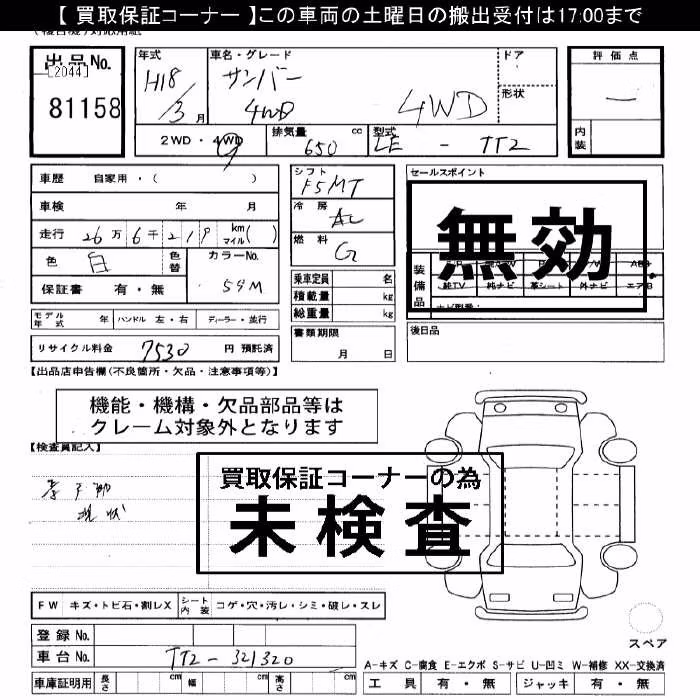 【 買取保証コーナー 】この車両の土曜日の搬出受付は17:00まで
出品No.
[2044]
81158
年式
H18/3月
車名・グレード
サンバー
4WD
4WD
ドア
・
形状
評価点
一
内装
2WD・4WD
排気量 cc
650
型式
LE - TT2
車歴 自家用・( )
車検 年 月
走行 26万6千219 km マイル( )
色 白 色替
カラーNo. 59M
保証書 有・無
シフト
F5MT
冷房
AC
燃料
G
乗車定員 名
積載量 kg
総重量 kg
書類期限
月 日
セールスポイント
無効
装備品
純TV 純ナビ 革シート 外ナビ エアB
後日品
モデル年式 年 ハンドル 左・右 ディーラー・並行
リサイクル料金 7530 円 預託済
【出品店申告欄(不良箇所・欠品・注意事項等)】
機能・機構・欠品部品等は
クレーム対象外となります
【検査員記入】
現状
買取保証コーナーの為
未検査
FW キズ・トビ石・割レX
シート内装 コゲ・穴・汚レ・シミ・破レ・スレ
登録No.
車台No. TT2-321320
車庫証明用 長さ cm 幅 cm 高さ cm
スペア
A-キズ C-腐食 E-エクボ S-サビ U-凹ミ W-補修 XX-交換済
工具 有・無 ジャッキ 有・無